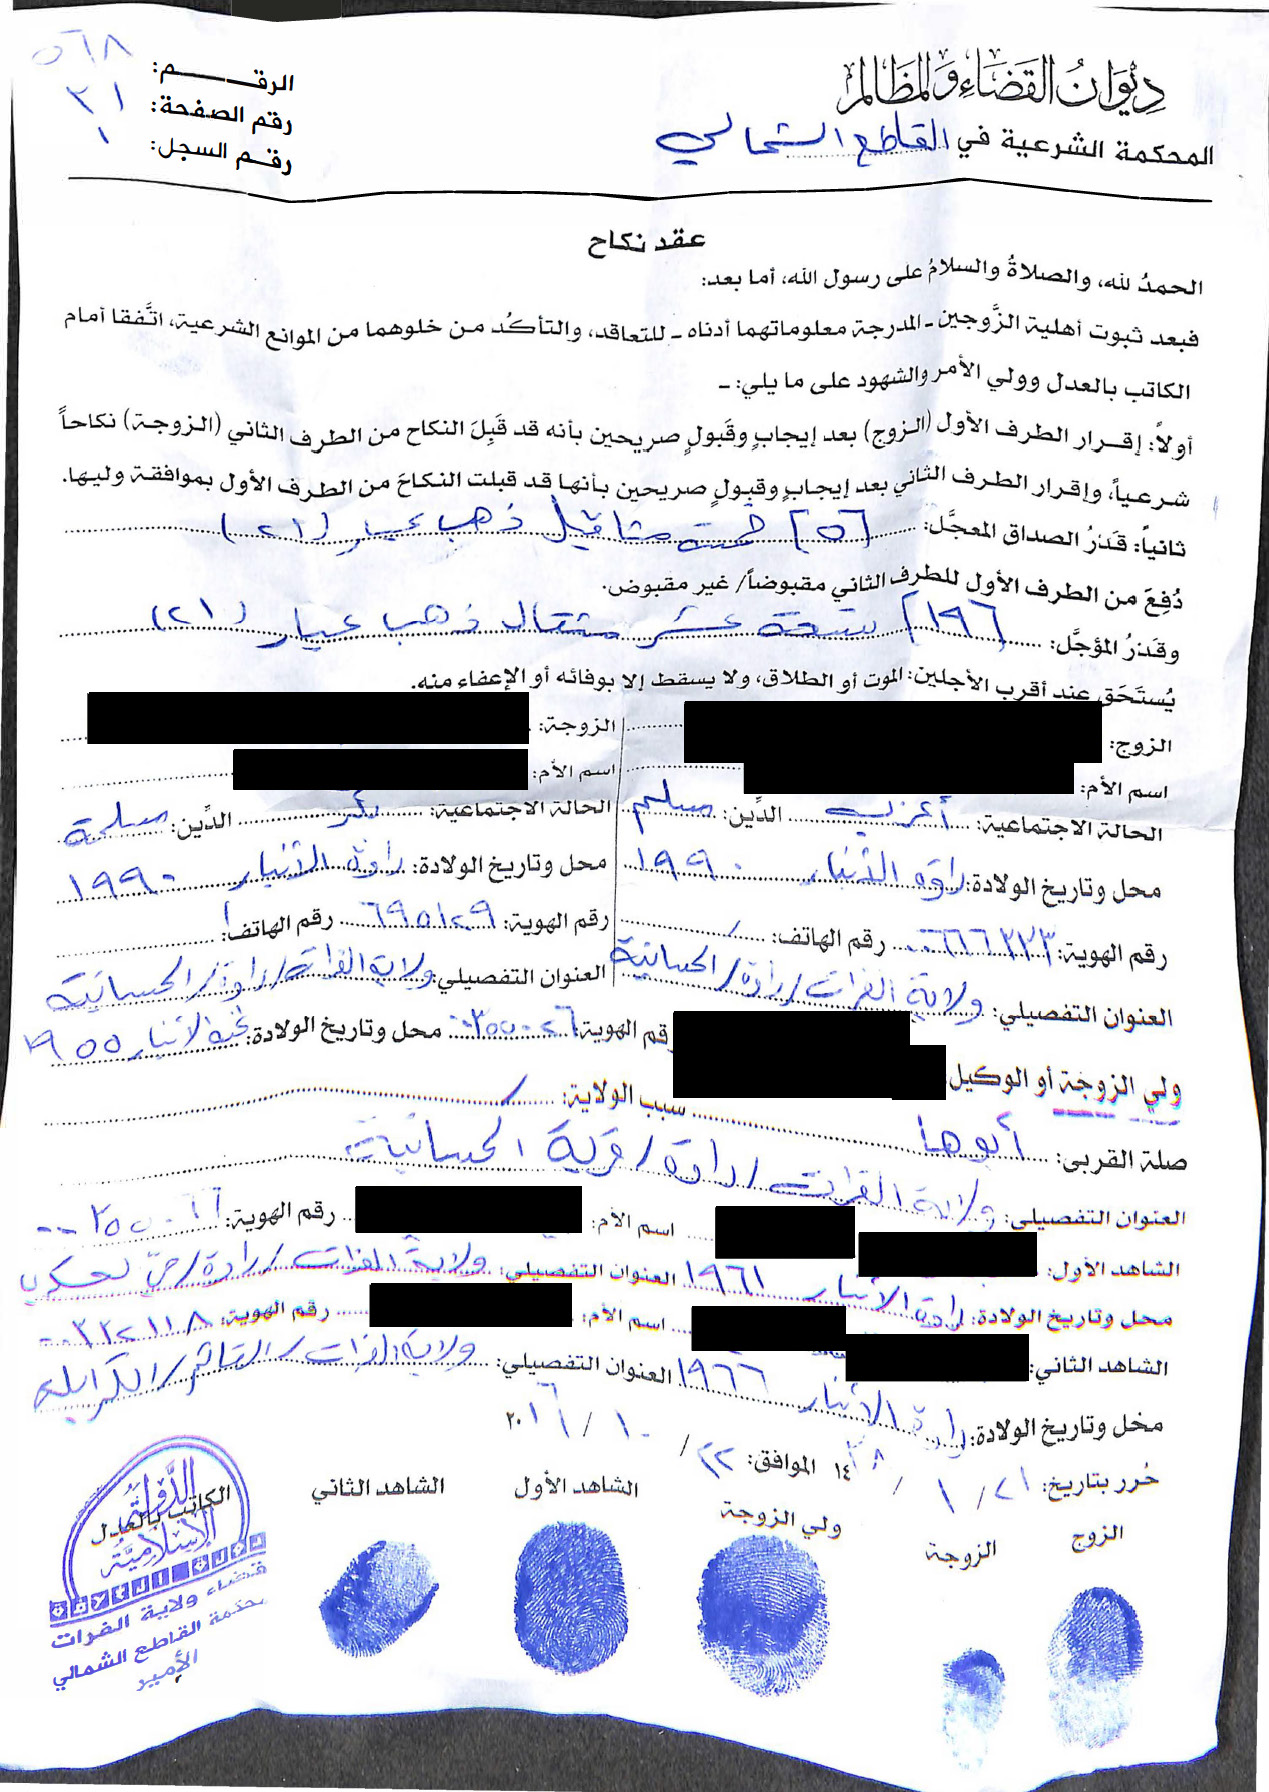 ديْوَانُ القَضَاءِ وَالمَظَالمِ
المحكمة الشرعية في القاطع الشمالي
الرقـــــم: ٥٦٨
رقم الصفحة: ٣١
رقم السجل: ١
عقد نكاح
الحمدُ لله، والصلاةُ والسلامُ على رسول الله، أما بعد:
فبعد ثبوت أهلية الزَّوجين ـ المدرجة معلوماتهما أدناه ـ للتعاقد، والتأكُد من خلوهما من الموانع الشرعية، اتَّفقا أمام
الكاتب بالعدل وولي الأمر والشهود على ما يلي: ـ
أولاً: إقرار الطرف الأول (الزوج) بعد إيجابٍ وقَبولٍ صريحين بأنه قد قَبِلَ النكاح من الطرف الثاني (الزوجة) نكاحاً
شرعياً، وإقرار الطرف الثاني بعد إيجابٍ وقبولٍ صريحين بأنها قد قبلت النكاحَ من الطرف الأول بموافقة وليها.
ثانياً: قَدْرُ الصداق المعجَّل: [٥] خمسة مثاقيل ذهب عيار (٢١)
دُفِعَ من الطرف الأول للطرف الثاني مقبوضاً/ غير مقبوض.
وقَدْرُ المؤجَّل: عشر مثقال ذهب عيار (٢١)
يُستَحَق عند أقرب الأجلين: الموت أو الطلاق، ولا يسقط إلا بوفائه أو الإعفاء منه.
الزوج: الزوجة:
اسم الأم: اسم الأم:
الحالة الاجتماعية: أعزب الدِّين: مسلم الحالة الاجتماعية: بكر الدِّين: مسلمة
محل وتاريخ الولادة: راوة الانبار ١٩٩٠ محل وتاريخ الولادة: راوة الانبار ١٩٩٠
رقم الهوية: رقم الهاتف: رقم الهوية: رقم الهاتف:
العنوان التفصيلي: ولاية الفرات/راوة/الحسانية العنوان التفصيلي: ولاية الفرات/راوة/الحسانية
ولي الزوجة أو الوكيل رقم الهوية: محل وتاريخ الولادة: الانبار ١٩٥٥
صلة القربى: أبوها سبب الولاية:
العنوان التفصيلي: ولاية الفرات/راوة/قرية الحسانية
الشاهد الأول: اسم الأم: رقم الهوية:
محل وتاريخ الولادة: راوة الانبار ١٩٦١ العنوان التفصيلي: ولاية الفرات/راوة/حي
الشاهد الثاني: اسم الأم: رقم الهوية:
محل وتاريخ الولادة: راوة الانبار ١٩٦٦ العنوان التفصيلي: ولاية الفرات/القائم/الكرابلة
حُرر بتاريخ: ٢١/١/١٤٣٨ الموافق: ٢٢/١٠/٢٠١٦
الزوج الزوجة ولي الزوجة الشاهد الأول الشاهد الثاني الكاتب بالعدل
الدَّوْلَةُ
الإسْلَامِيَّةُ
قضاء ولاية الفرات
محكمة القاطع الشمالي
الأمير